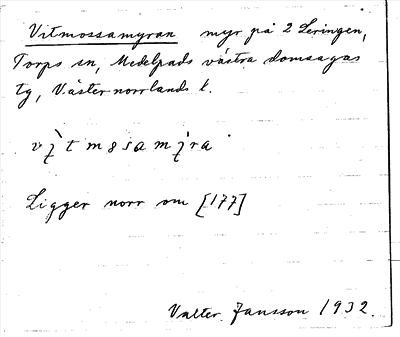 Vitmossamyran myr på 2 Leringen,
Torps sn, Medelpads västra domsagas
tg, Västernorrlands l.
Ligger norr om [177]
Valter Jansson 1932.